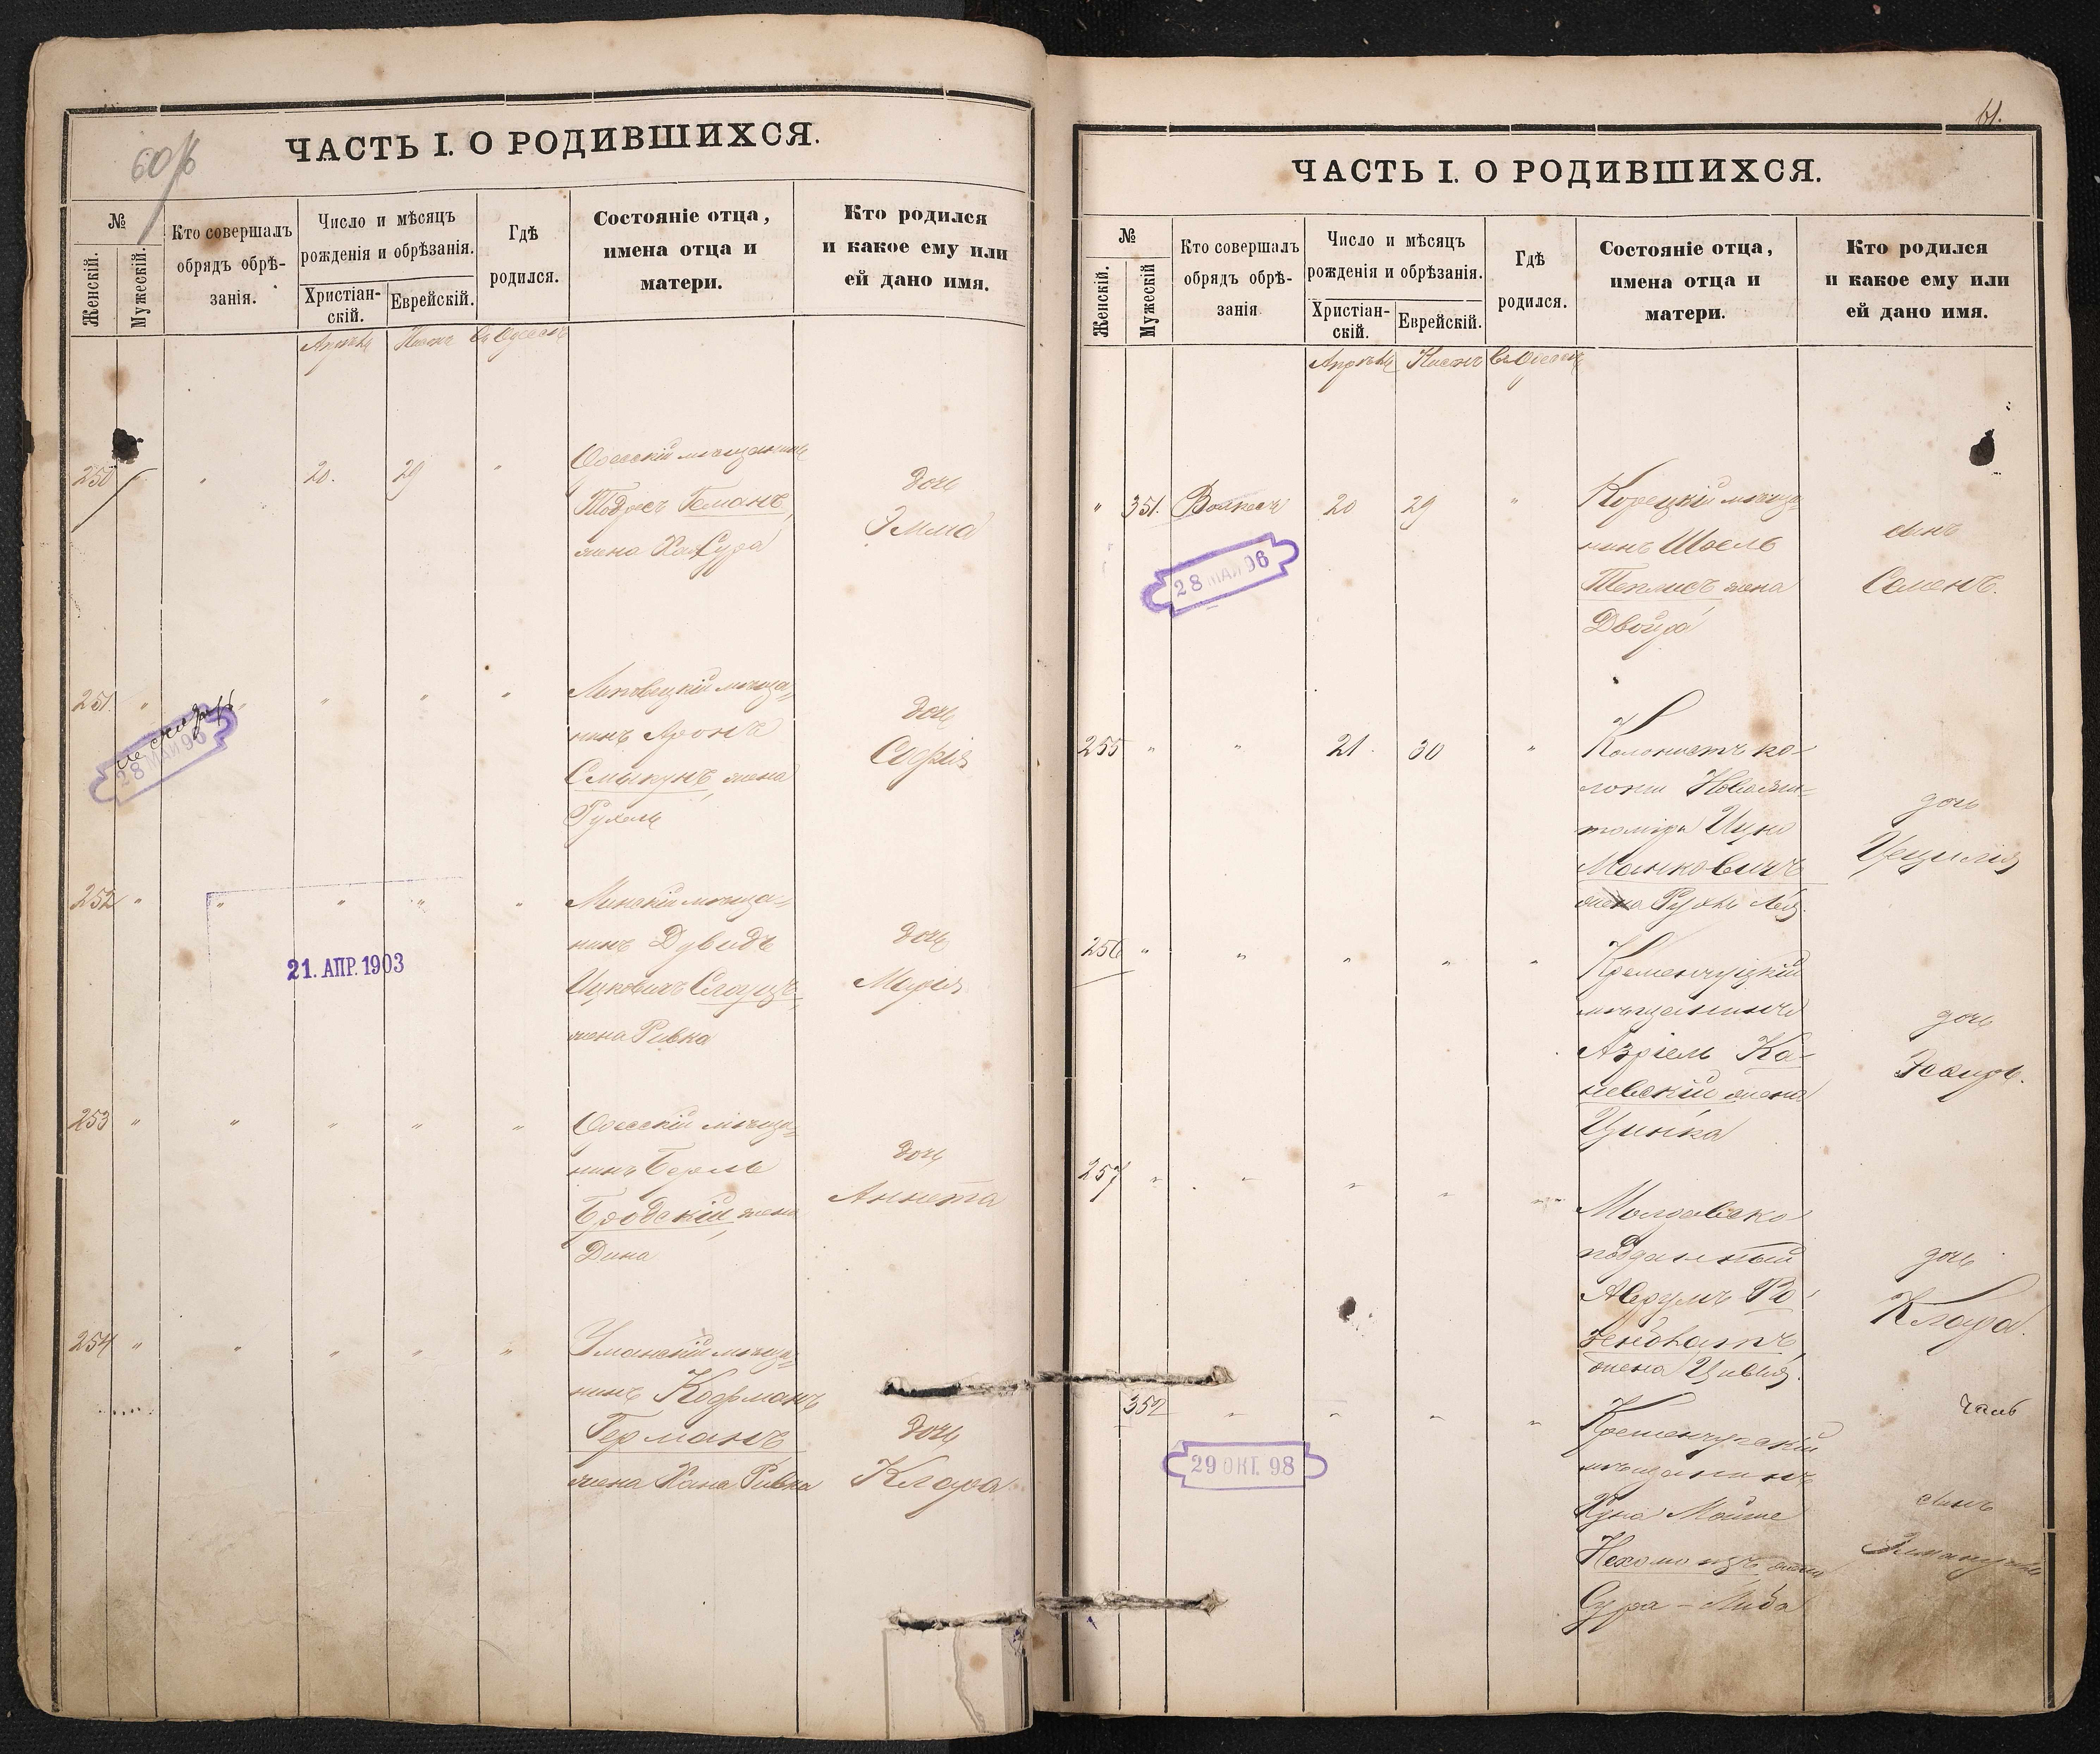 60/б
ЧАСТЬ I. О РОДИВШИХСЯ.
№
Женскій.
Мужескій.
Кто совершалъ
обрядъ обрѣ-
занія.
Число и мѣсяцъ
рожденія и обрѣзанія.
Христіан-
скій.
Еврейскій.
Гдѣ
родился.
Состояніе отца,
имена отца и
матери.
Кто родился
и какое ему или
ей дано имя.
Апрѣль Нисанъ Въ Одессѣ
250 " 20. 29 "
Одесскій мѣщанинъ
Тодресъ Геманъ,
жена Хая Сура
дочь
Эмма
251. " " " " "
Липовецкій мѣща-
нинъ Аронъ
Смыкунъ, жена
Рухель
дочь
Софія
28 МАЙ 96
252 " " " " "
Минскій мѣща-
нинъ Дувидъ
Ицковичъ
жена Ривка
дочь
Марія
21. АПР. 1903
253 " " " " "
Одесскій мѣща-
нинъ Берль
Бродскій, жена
Дина
дочь
Аннета
254 " " " " "
Уманскій мѣща-
нинъ Кофманъ
Германъ
жена Хана Ривка
дочь
Клара.
61.
ЧАСТЬ I. О РОДИВШИХСЯ.
№
Женскій.
Мужескій
Кто совершалъ
обрядъ обрѣ-
занія
Число и мѣсяцъ
рожденія и обрѣзанія.
Христіан-
скій.
Еврейскій.
Гдѣ
родился.
Состояніе отца,
имена отца и
матери.
Кто родился
и какое ему или
ей дано имя.
Апрѣль Нисанъ Въ Одессѣ
" 351. 20 29 "
Корецкій мѣща-
нинъ Шоель
Теплисъ жена
Двойра
сынъ
Семенъ.
28 МАЙ 96
255 " " 21. 30 "
Колонистъ ко-
лоніи Новожи-
томіра Ицко
Манковичъ
жена Рухль Лея.
дочь
Цецилія
256 " " " " "
Кременчугскій
мѣщанинъ
Азріель Ка-
невскій жена
Ципка
дочь
Эсѳирь.
257 " " " " "
Молдавско
подданный
Аврумъ Ро-
зенблатъ,
жена Цивія.
дочь
Клара.
352 " " " "
Кременчугскій
мѣщанинъ
Хуна Мойше
жена
Сура-Либа
сынъ
29 ОКТ. 98